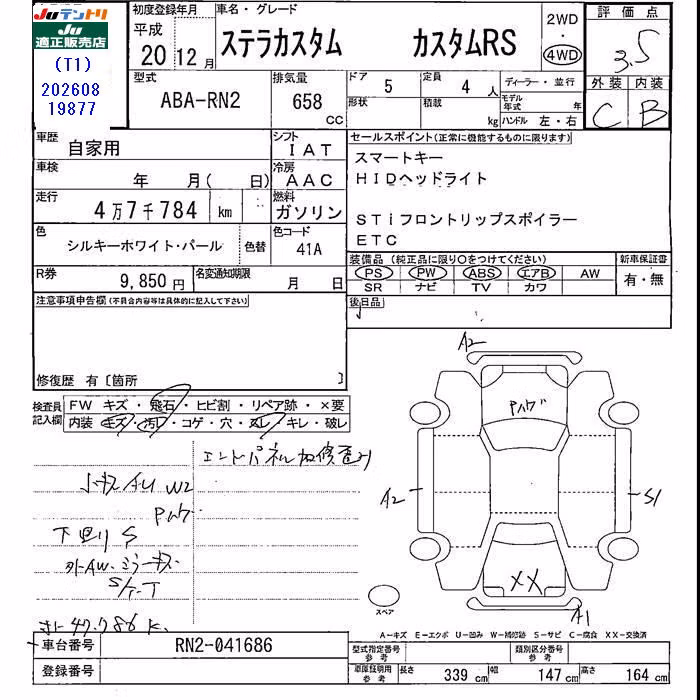 JUテントリ
JU
適正販売店
(T1)
202608
19877
初度登録年月
平成
20 12 月
車名・グレード
ステラカスタム カスタムRS
2WD
・
4WD
評価点
3.5
外装 内装
C B
型式
ABA-RN2
排気量
658
CC
ドア
5
定員
4 人
形状
積載
kg
ディーラー・並行
モデル年式 年
ハンドル 左・右
車歴
自家用
シフト
IAT
車検
年 月( 日)
冷房
AAC
走行
4万7千784 km
燃料
ガソリン
色
シルキーホワイト・パール
色替
色コード
41A
R券
9,850 円
名変通知期限
月 日
セールスポイント(正常に機能するものに限ります)
スマートキー
HIDヘッドライト
STiフロントリップスポイラー
ETC
装備品(純正品に限り○をつけてください)
PS PW ABS エアB AW
SR ナビ TV カワ
新車保証書
有・無
後日品
注意事項申告欄(不具合内容等は具体的に記入して下さい)
修復歴 有〔箇所 〕
検査員
記入欄
FW キズ・飛石・ヒビ割・リペア跡・×要
内装 キズ・汚レ・コゲ・穴・スレ・キレ・破レ
AU W2
下廻リ S
外AW、ミラーキズ
A2
A2
S1
XX
A1
スペア
A-キズ E-エクボ U-凹み W-補修跡 S-サビ C-腐食 XX-交換済
車台番号
RN2-041686
登録番号
型式指定番号
参考
類別区分番号
参考
車庫証明用
参考
長さ 339 cm 幅 147 cm 高さ 164 cm